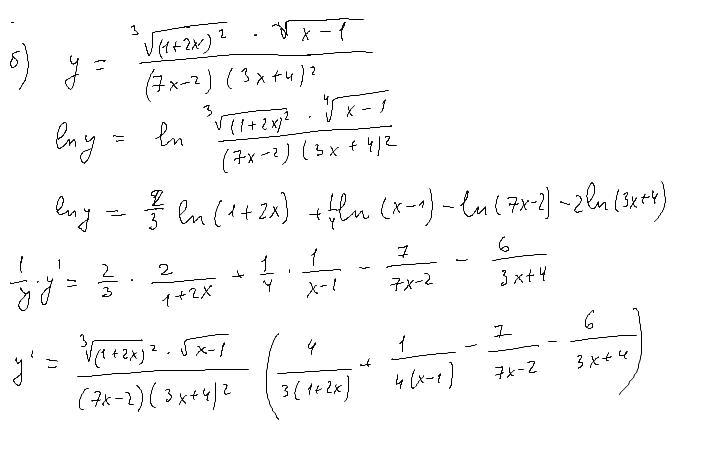 б) y = \frac{\sqrt[3]{(1+2x)^2} \cdot \sqrt[4]{x-1}}{(7x-2)(3x+4)^2}
ln y = ln \frac{\sqrt[3]{(1+2x)^2} \cdot \sqrt[4]{x-1}}{(7x-2)(3x+4)^2}
ln y = \frac{2}{3} ln(1+2x) + \frac{1}{4} ln(x-1) - ln(7x-2) - 2ln(3x+4)
\frac{1}{y} \cdot y' = \frac{2}{3} \cdot \frac{2}{1+2x} + \frac{1}{4} \cdot \frac{1}{x-1} - \frac{7}{7x-2} - \frac{6}{3x+4}
y' = \frac{\sqrt[3]{(1+2x)^2} \cdot \sqrt{x-1}}{(7x-2)(3x+4)^2} \left( \frac{4}{3(1+2x)} + \frac{1}{4(x-1)} - \frac{7}{7x-2} - \frac{6}{3x+4} \right)